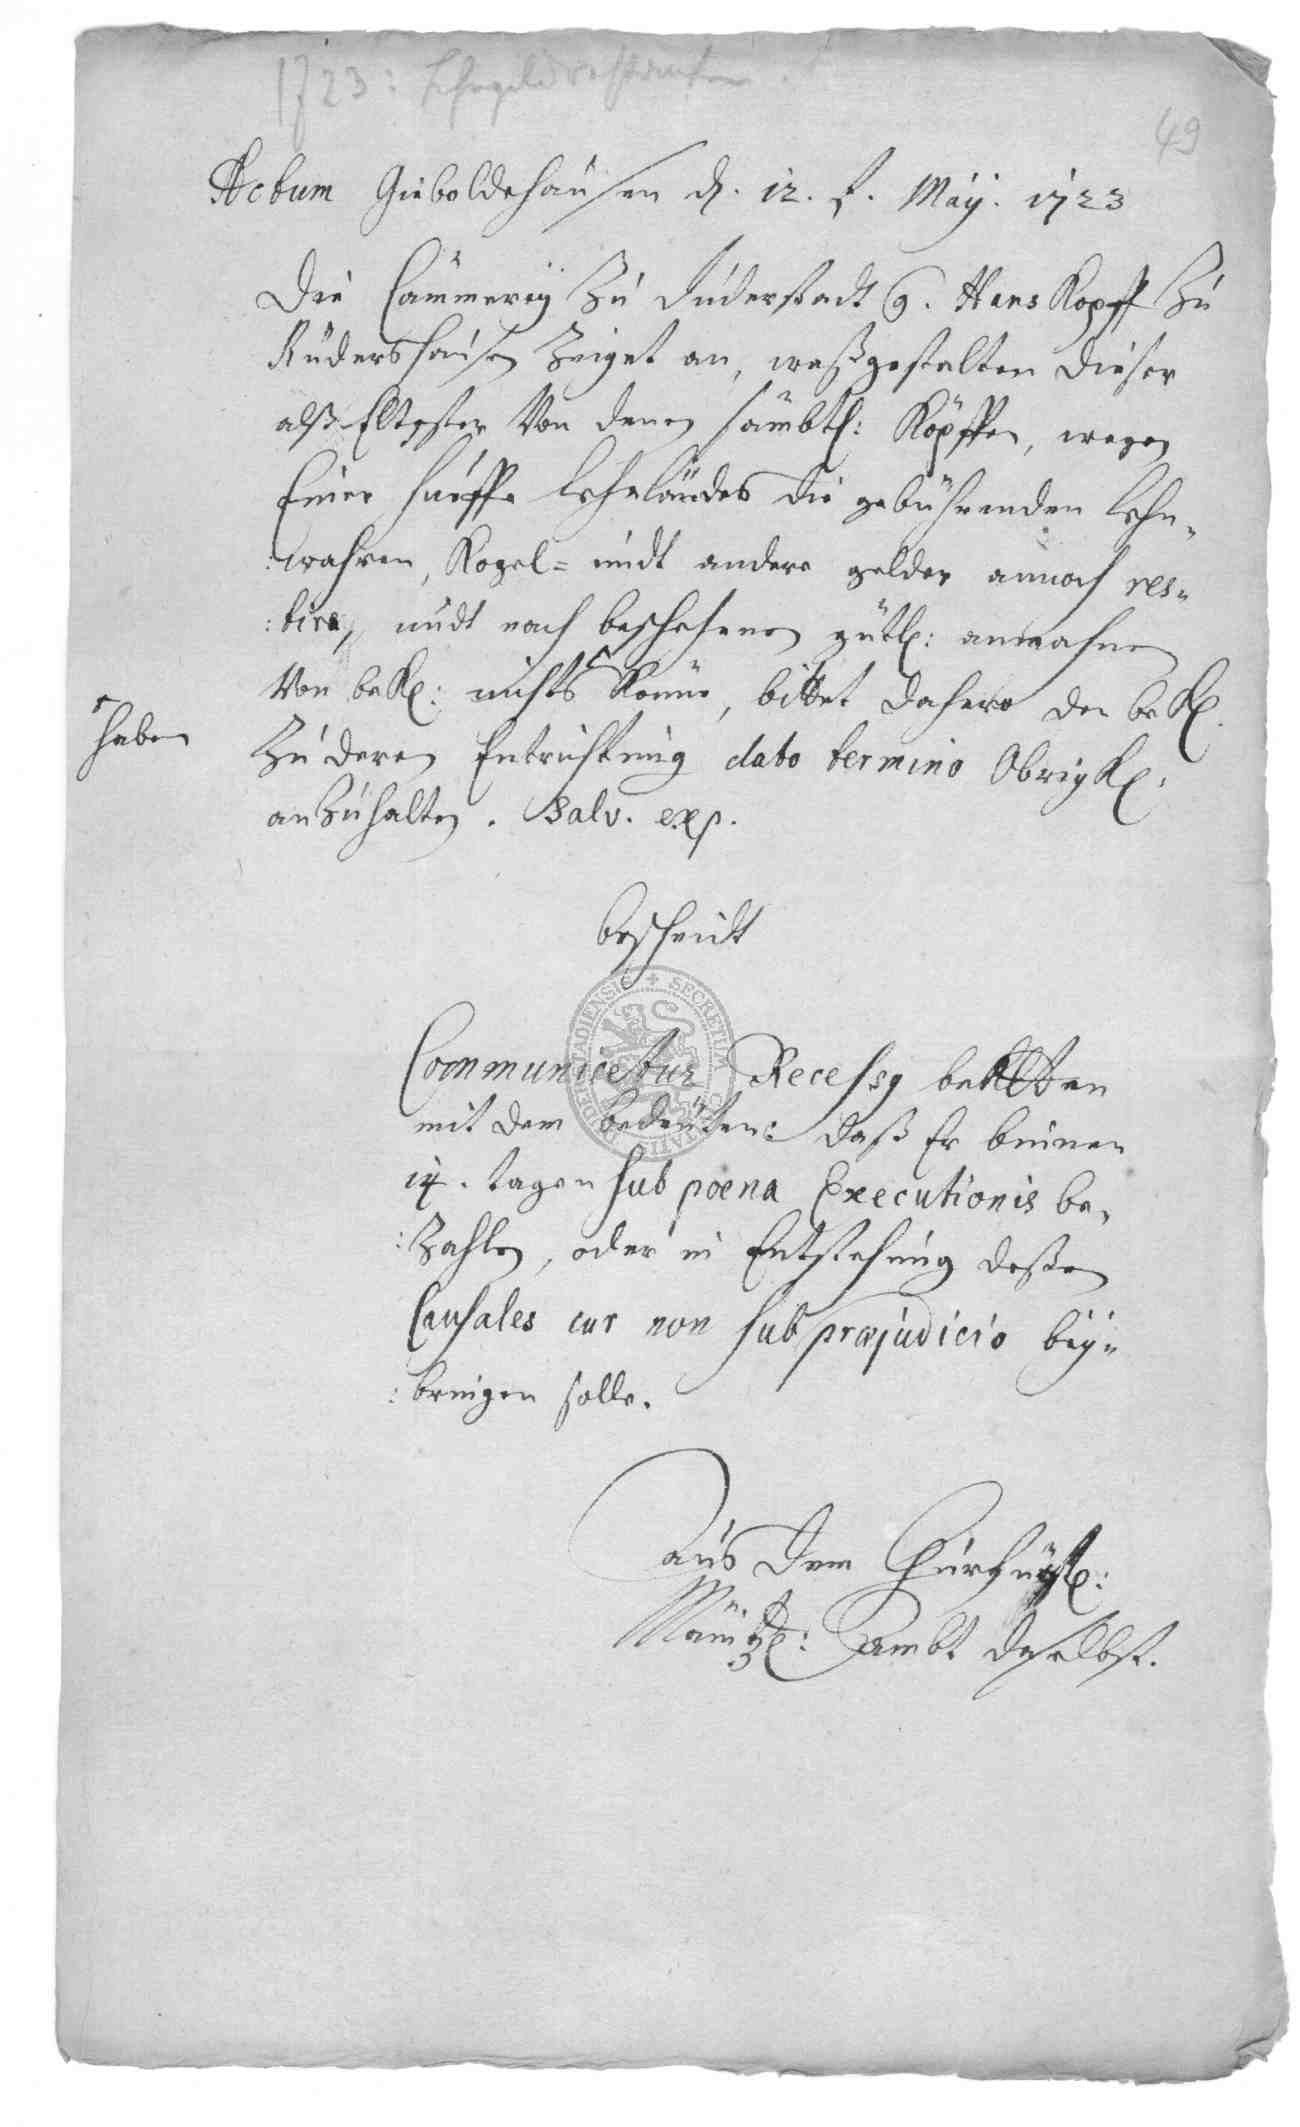 1723: Lehngeldrestanten.
49
Actum Gieboldehausen d. 12. t. Maÿ. 1723
Die Cämmereÿ zu Duderstadt C. Hans Kopff zu
Rüdershausen zeiget an, waßgestalten dieser
alß Eltester von denen sämbtl: Köpffen, wegen
Einer Hueffe Lehnländes die gebührenden Lehn-
:wahren, Kogel= undt andere gelder annoch res-
:tire, undt nach beschehenen gütl: anmahnen
von bekl: nichts könne, bittet dahero den bekl.
haben
zu deren Entrichtung dato termino Obrigkl:
anzuhalten. Salv. exp.
Bescheidt
Communicetur Recessg beklten
mit dem bedeuten: daß Er binnen
14. tagen sub poena Executionis be-
:zahlen, oder in Entstehung deßen
Causales cur non sub præjudicio beÿ-
:bringen solle.
Aus dem Churfürstl:
Maintzl: Ambt daselbst.
SECRETUM CIVITATIS DUDERSTADIENSIS